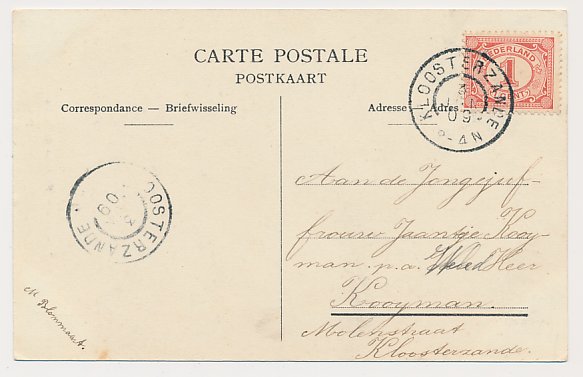 CARTE POSTALE
POSTKAART
Correspondance — Briefwisseling
Adresse Adres
NEDERLAND
1
CENT
KLOOSTERZANDE
09
-4N
Aan de Jongejuf-
frouw Jaantje Kooy-
man. p.a. Heer
Kooyman.
Molenstraat
Kloosterzande.
KLOOSTERZANDE
09
M Blommaert.